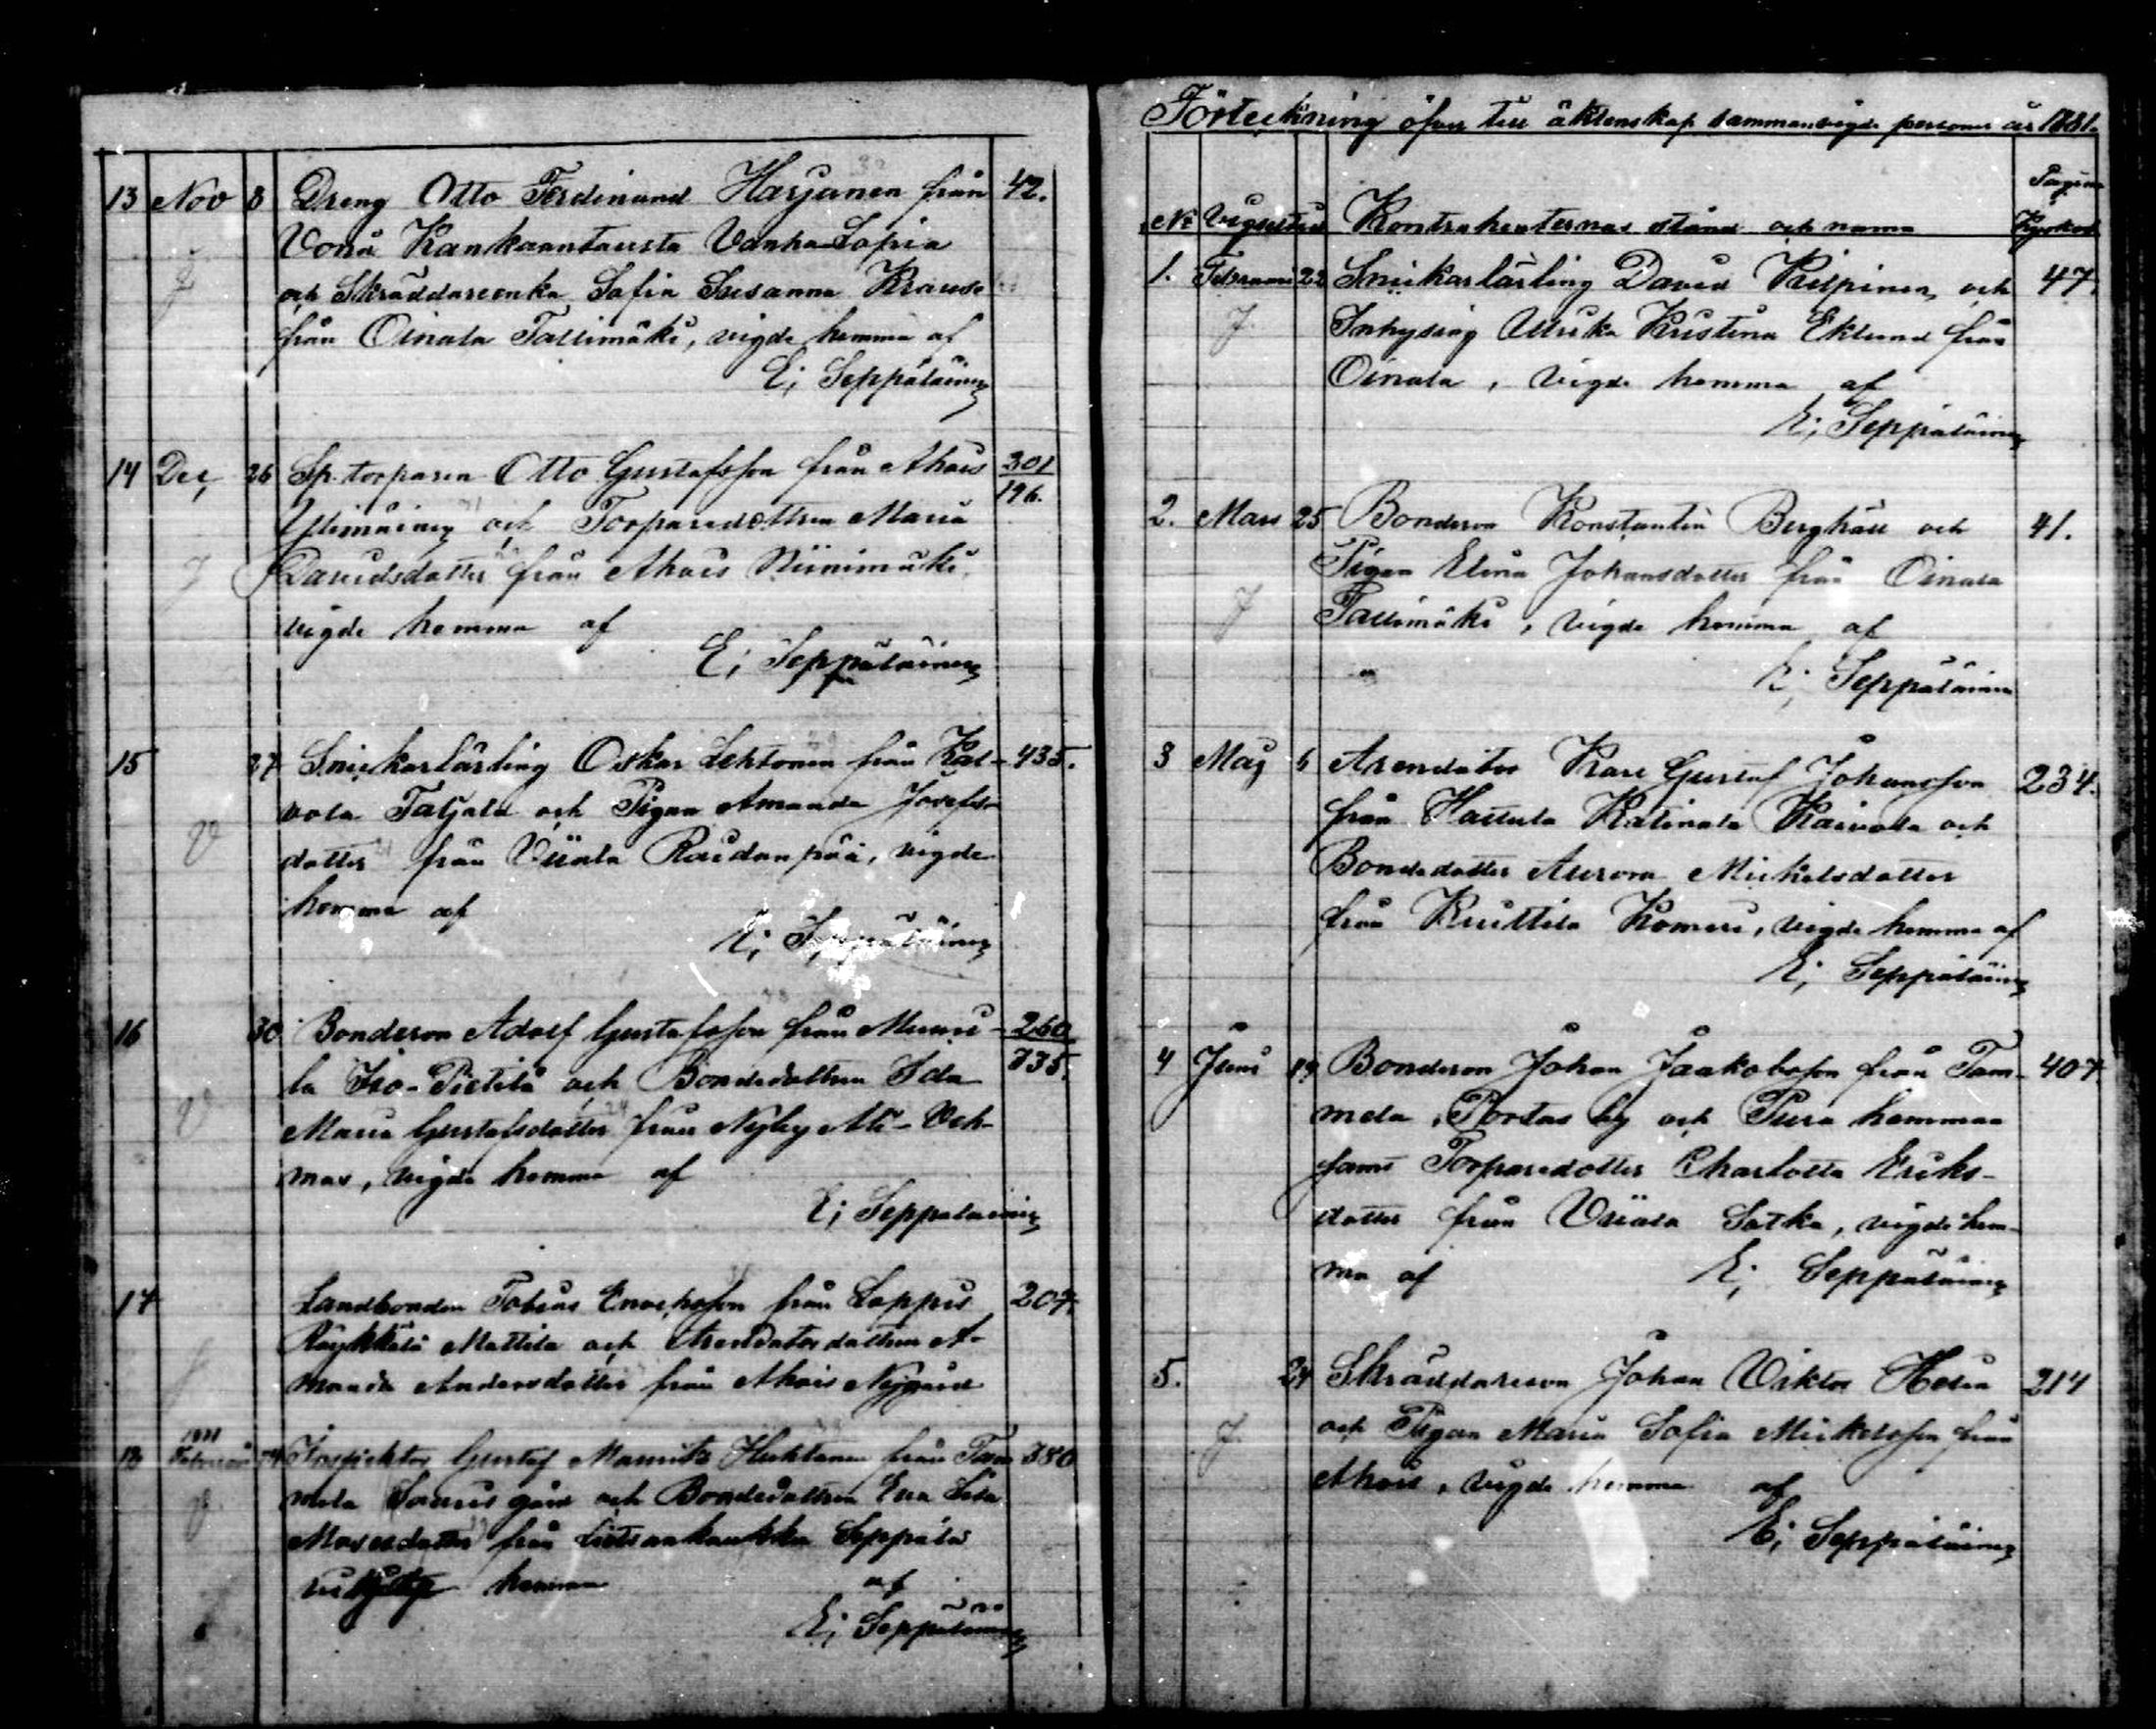 13 Nov 8 Dreng Otto Ferdinand Harjanen från 42.
Vonå Kankaantausta Vanha-Lapia
och Skräddareenka Sofia Susanna Krause
från Oinala Tallimäki, vigde hemma af
E; Seppäläinen
14 Dec, 26 Sp. torparen Otto Gustafsson från Ahois 301/196.
Ylimäinen och Torparedottren Maria
Davidsdotter från Ahois Niinimäki,
vigde hemma af
E; Seppäläinen
15 27 Snickarlärling Oskar Lehtonen från Kal- 435.
vola Taljala och Pigan Amanda Josefs-
dotter från Viiala Raudanpää, vigde
hemma af
E; Seppäläinen
16 30 Bondeson Adolf Gustafsson från Munni- 260/335.
la Iso-Pietilä och Bondedottren Ida
Maria Gustafsdotter från Nyby Ali-Veh-
mas, vigde hemma af
E; Seppäläinen
17 Landbonden Tobias Enochsson från Loppis 207.
Räyskälä Mattila och Arendatordottren A-
manda Andersdotter från Ahois Nygård
18 Februari Inspektor Gustaf Mauritz Huhtanen från Tam 380
mela gård och Bondedottren Eva Lisa
Mosesdotter från Seppälä
hemma af
E; Seppäläinen
Förteckning öfver till äktenskap sammanvigde personer år 1881.
No Vigseltid Kontrahenternas stånd och namn Pagina Kyrkob
1. Februari 22 Snickarlärling David Kilpinen och 47.
Inhysing Ulrika Kristina Eklund från
Oinala, vigde hemma af
E; Seppäläinen
2. Mars 25 Bondeson Konstantin Berghäll och 41.
Pigan Elina Johansdotter från Oinala
Tallimäki, vigde hemma af
E; Seppäläinen
3 Maj 6 Arendator Karl Gustaf Johansson 234.
från Hattula Katinala Kaivola och
Bondedotter Aurora Mickelsdotter
från Kuittila Komeri, vigde hemma af
E; Seppäläinen
4 Juni 19 Bondeson Johan Jaakobsson från Tam- 407
mela, Portas by och Pura hemman
samt Torparedotter Charlotta Eriks-
dotter från Viiala Satka, vigde hem-
ma af E; Seppäläinen
5. 24 Skräddareson Johan Viktor Helin 214
och Pigan Maria Sofia Mickelsson från
Ahois, vigde hemma af
E; Seppäläinen